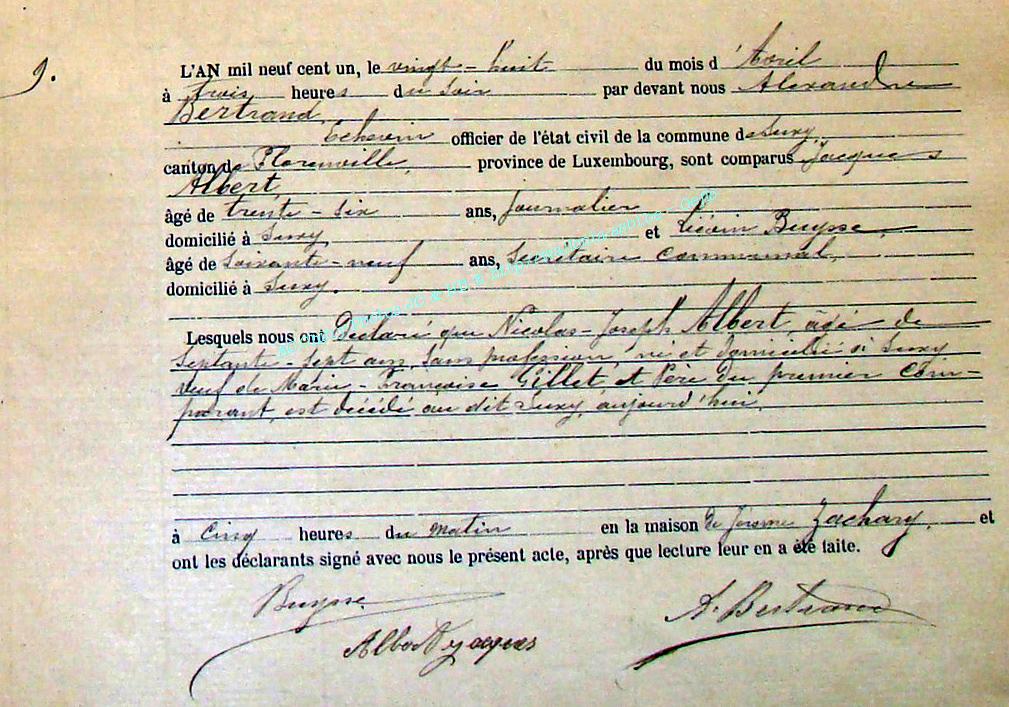 9.
L'AN mil neuf cent un, le vingt-huit du mois d'Avril
à trois heures du soir par devant nous Alexandre
Bertrand,
Echevin officier de l'état civil de la commune de Suxy,
canton de Florenville, province de Luxembourg, sont comparus Jacques
Albert,
âgé de trente-six ans, Journalier
domicilié à Suxy, et Liévin Buysse,
âgé de Soixante-neuf ans, Secrétaire Communal,
domicilié à Suxy.
Lesquels nous ont Déclaré que Nicolas-Joseph Albert, âgé de
Septante-sept ans, Sans profession, né et domicilié à Suxy
veuf de Marie-Françoise Gillet, et Père du premier Com-
parant, est décédé au dit Suxy, aujourd'hui,
à Cinq heures du matin en la maison de Zachary, et
ont les déclarants signé avec nous le présent acte, après que lecture leur en a été faite.
Buysse
A. Bertrand
Albert jacques